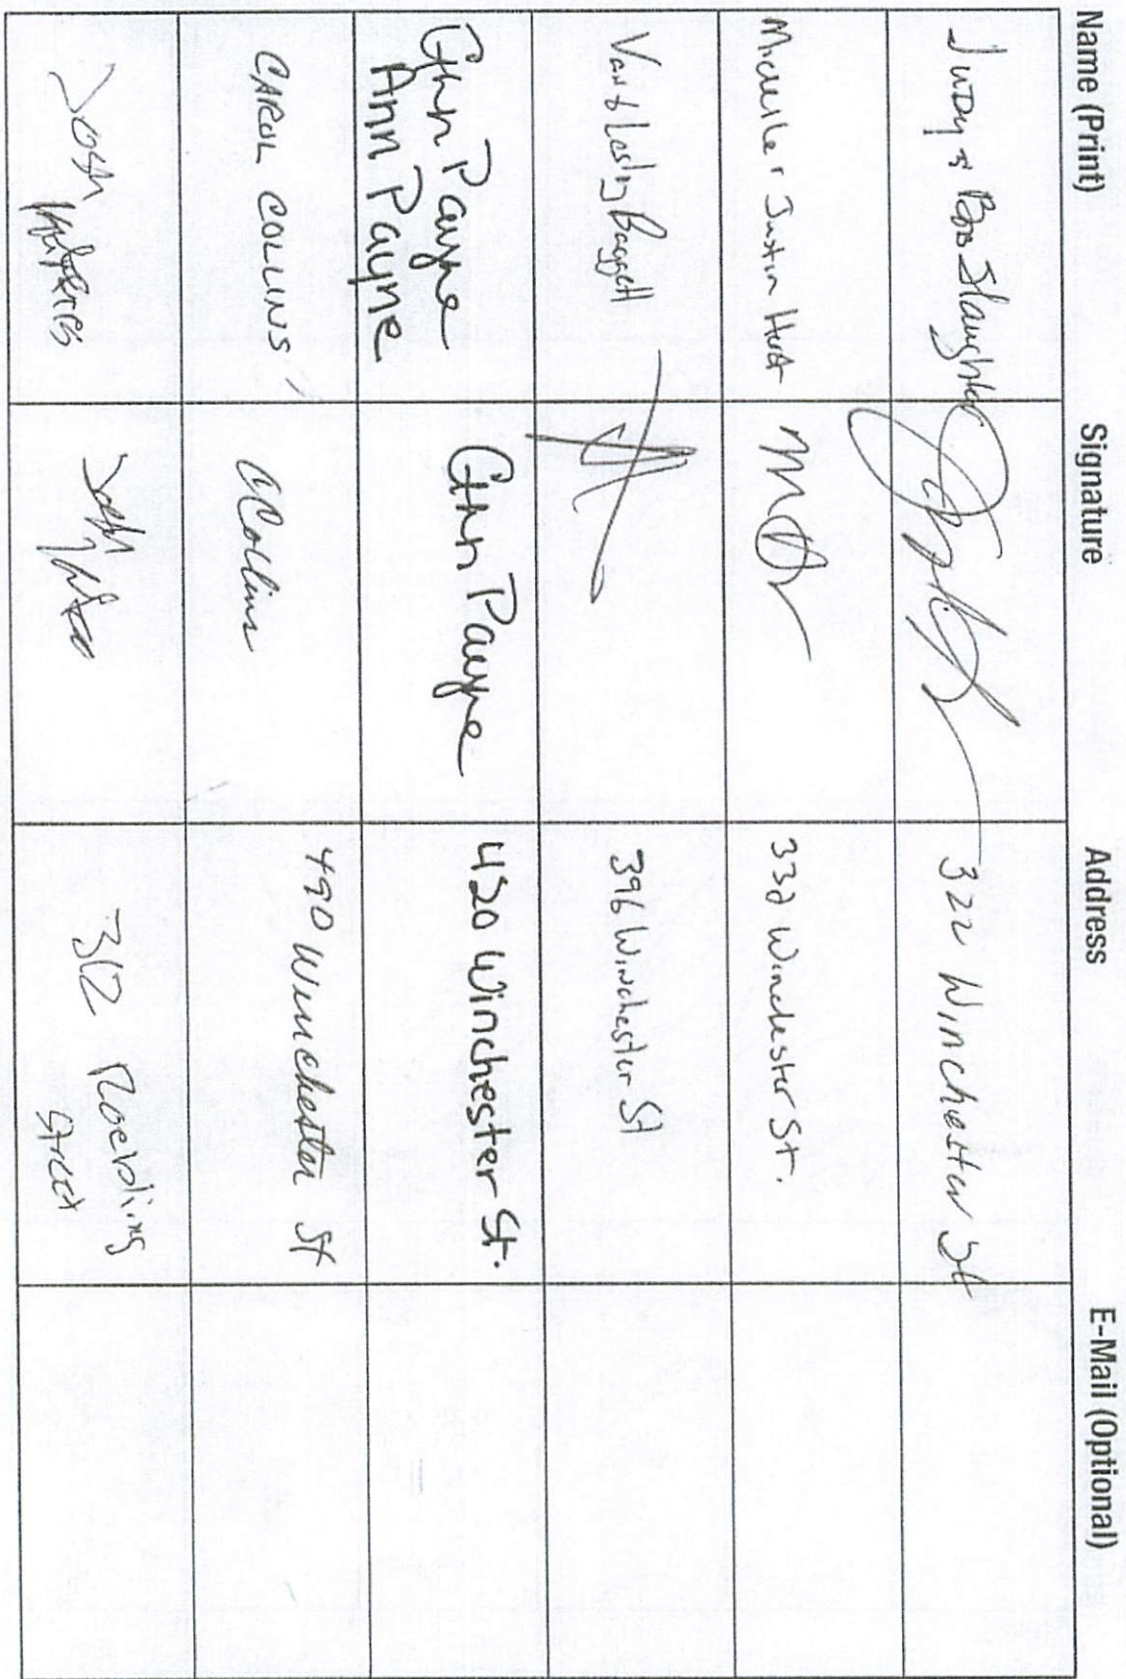 Name (Print) Signature Address E-Mail (Optional)
Judy & Bob Slaughter 322 Winchester St
Michelle & Justin Hutt 332 Winchester St.
Van & Lesley Baggett 396 Winchester St
Ann Payne Ann Payne 420 Winchester St.
Ann Payne
CAROL COLLINS CCollins 490 Winchester St
Josh Josh 312 Roebling
Street